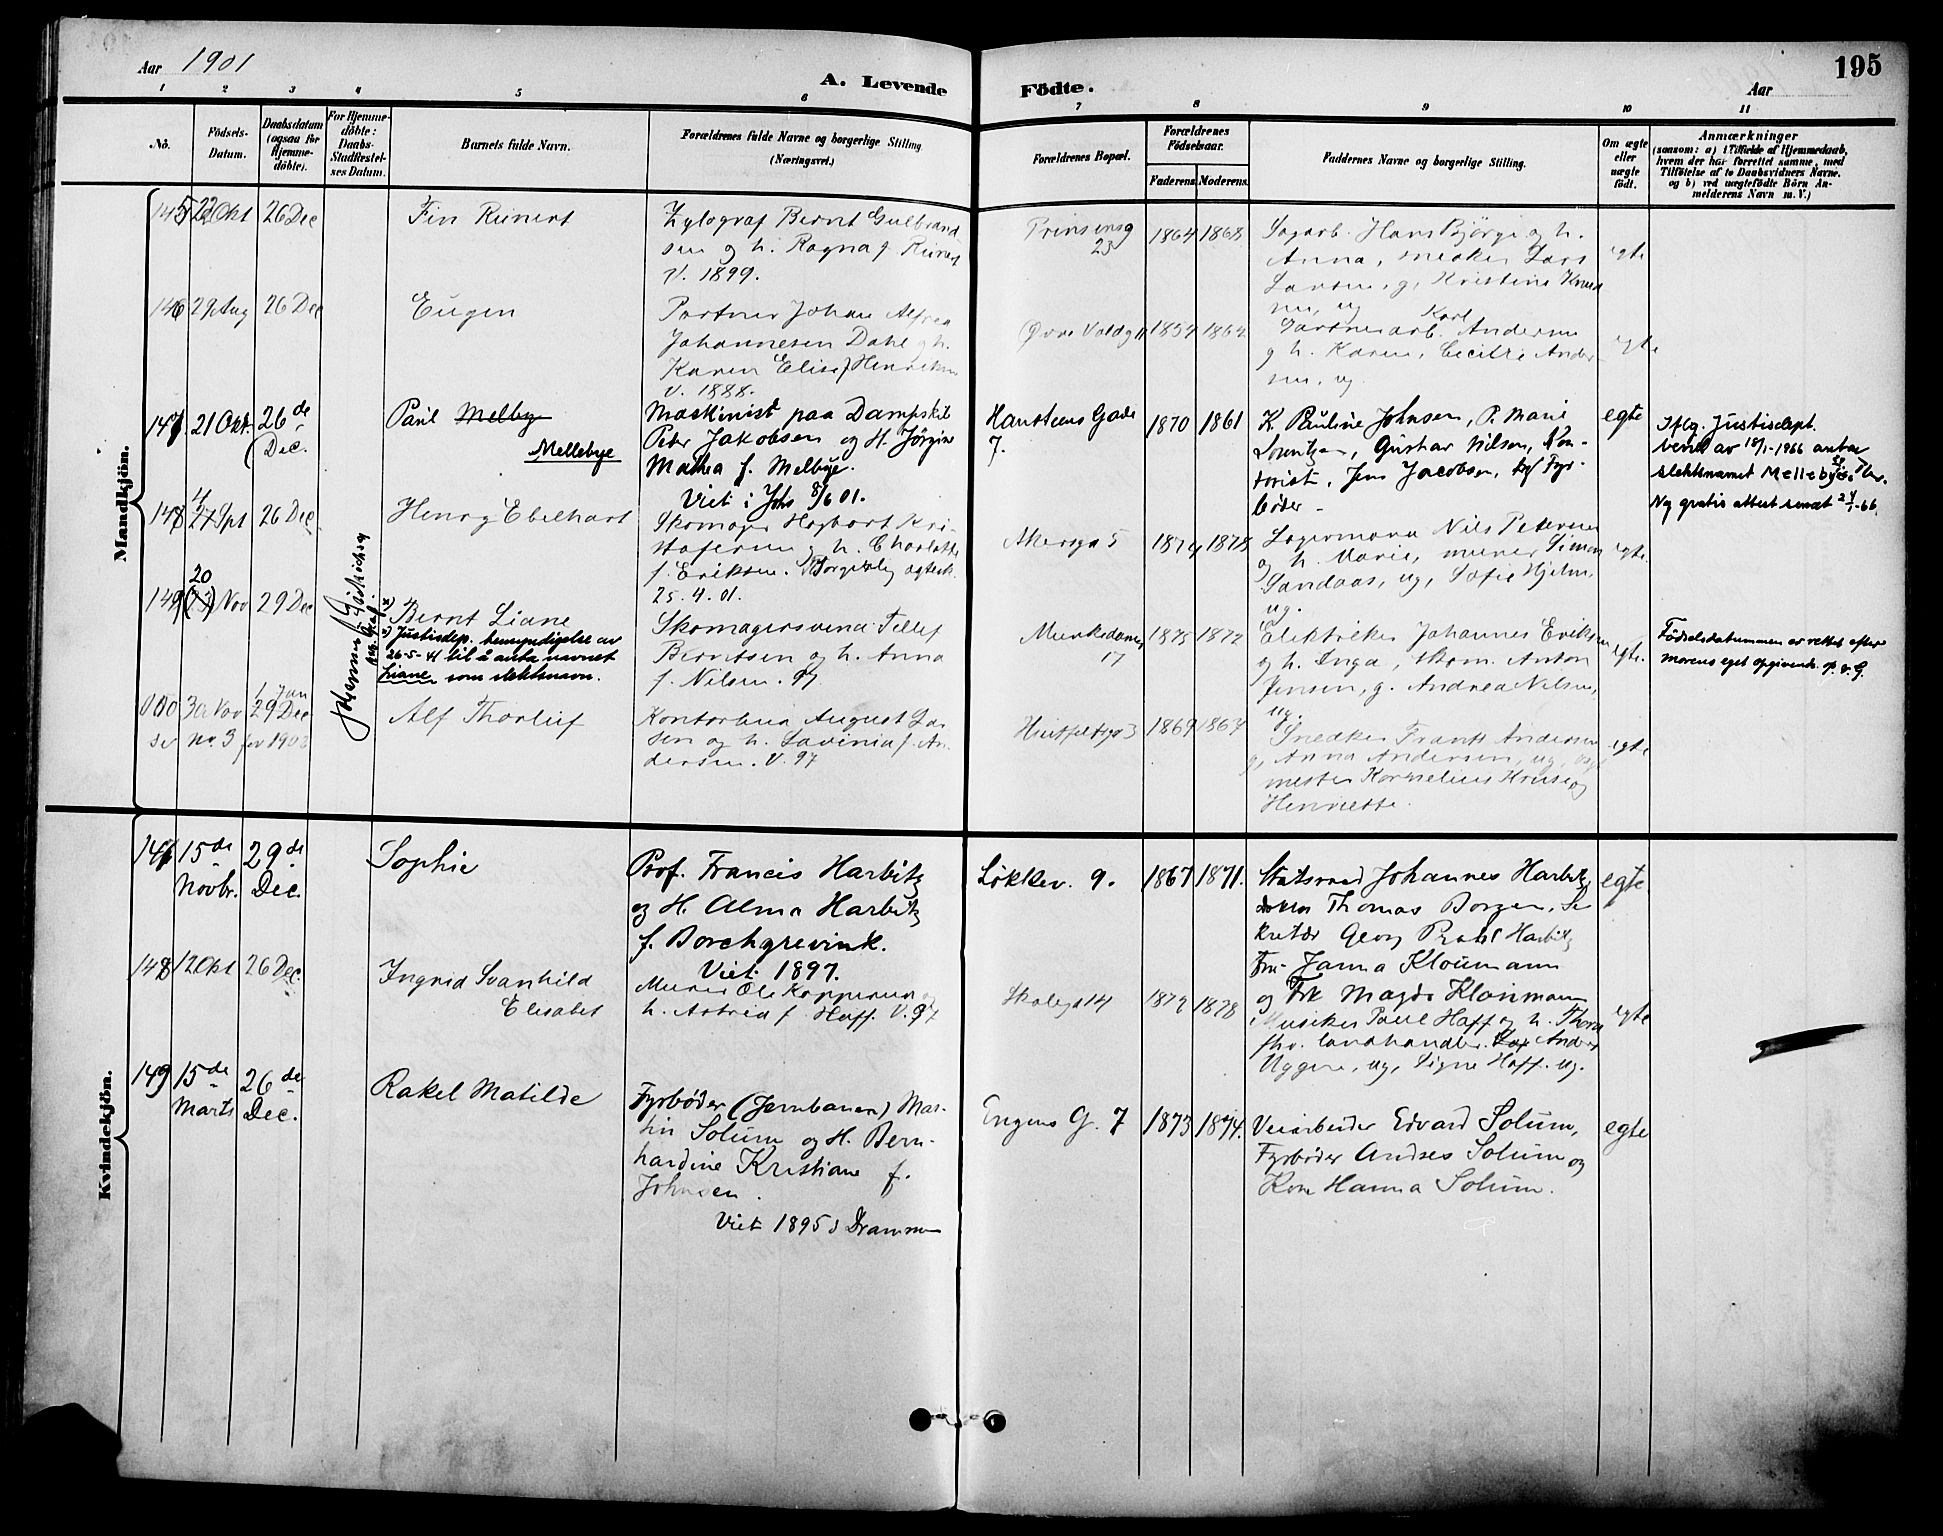 Aar 1901
A. Levende Födte.
Aar
195
1 2 3 4 5 6 7 8 9 10 11
No.
Födsels-
Datum.
Daabsdatum
(ogsaa for
Hjemme-
döbte).
For Hjemme-
döbte:
Daabs-
Stadfæstel-
ses Datum.
Barnets fulde Navn.
Forældrenes fulde Navne og borgerlige Stilling
(Næringsvei.)
Forældrenes Bopæl.
Forældrenes
Födselsaar.
Faderens Moderens
Faddernes Navne og borgerlige Stilling.
Om ægte
eller
uægte
födt.
Anmærkninger
(saasom: a) i Tilfælde af Hjemmedaab,
hvem der har forrettet samme, med
Tilföielse af to Daabsvidners Navne.
og b) ved uægtefödte Börn An-
melderens Navn m. V.)
Mandkjön.
145 22 Okt 26 Dec
Fin Reinert
Xylograf Bernt Gulbrand-
sen og h. Ragna f. Reinert
V. 1899.
Prinsensg
23
1864 1868
Hans Bjørge og h.
Anna, snedker Lars
Larsen, g, Kristine
egte
146 29 Aug 26 Dec
Eugen
Portner Johan Alfred
Johannesen Dahl og h.
Karen Elise f Henriksen
V. 1888.
Øvre Voldg
1864
Karl
Gartnerarb. Andersen
og h. Karen, Cecilie Ander-
sen, ug
egte
147. 21 Okt. 26de
Dec.
Paul Melbye
Mellebye
Maskinist paa Dampskib
Peter Jakobsen og H. Jørgine
Mathea f. Melbye.
Viet i Johs 8/6 01.
Hansteens Gade
7.
1870 1861
K. Pauline Johnsen, P. Marie
Lorentzen, Gustav Nilsen, Kon-
torist, Jens Jacobsen, Fyr-
bøder -
egte
Iflg. Justisdept.
bevill av 18/1-1966 antar
slektsnamet Mellebye
Ny gratis attest sendt 24/1-66.
148 4 Spt 26 Dec
Henry Ebelhart
Skomager Hagbart Kri-
stofersen og h. Charlotte
f. Eriksen. Borgerlig egtesk.
25.4.01.
Akersga 5
1874 1878
Lagermand Nils Petersen
og h. Marie, murer Simon
Sandaas, ug, Sofie Hjelm,
ug.
egte
149 20 Nov 29 Dec
x) Bernt Liane
x) Justisdep. bemyndigelse av
26-5-41 til å anta navnet
Liane som slektsnavn.
Skomagersvend Tellef
Berntsen og h. Anna
f. Nilsen. 97
Munkedamsv
17
1875 1872
Elektriker Johannes Eriksen
og h. Inga, skom. Anton
Jensen, g. Andrea Nilsen,
ug.
egte.
Fødselsdatummen er rettet efter
morens eget opgivende.
150 30 Nov 1 Jan
29 Dec
se no. 3 for 1902
Alf Thorleif
Kontorbud August Lar-
sen og h. Lavinia f. An-
dersen. V. 97
Huitfeldtsga 3
1869 1867
Snedker Frantz Andersen
g, Anna Andersen, ug,
mester Kornelius Hruse og
Henriette.
egte
Kvindekjön.
147 15de
Novbr. 29de
Dec.
Sophie
Prof. Francis Harbitz
og H. Alma Harbitz
f. Borchgrevink.
Viet 1897.
Løkkev. 9.
1867 1871.
Statsraad Johannes Harbitz,
Thomas Borgen, Se-
kretær Georg Prahl Harbitz
Fru Janna Kloumann
og Frk Magda Kloumann
egte
148 12 Okt 26 Dec.
Ingrid Svanhild
Elisabet
Murer Ole Kopperud og
h. Astrid f. Hoff. V. 97
Skolega 14
1872 1878
Musiker Paul Hoff og h. Thora
fhv. landhandler. Anders
Uggen, ug, Signe Hoff. ug.
egte
149 15de
Marts 26de
Dec.
Rakel Matilde
Fyrbøder (Jernbanen) Mar-
tin Solum og H. Bern-
hardine Kristiane f.
Johnsen.
Viet 1895 i Drammen
Engens G. 7
1873 1874.
Veiarbeider Edvard Solum,
Fyrbøder Andres Solum og
Kone Hanna Solum.
egte